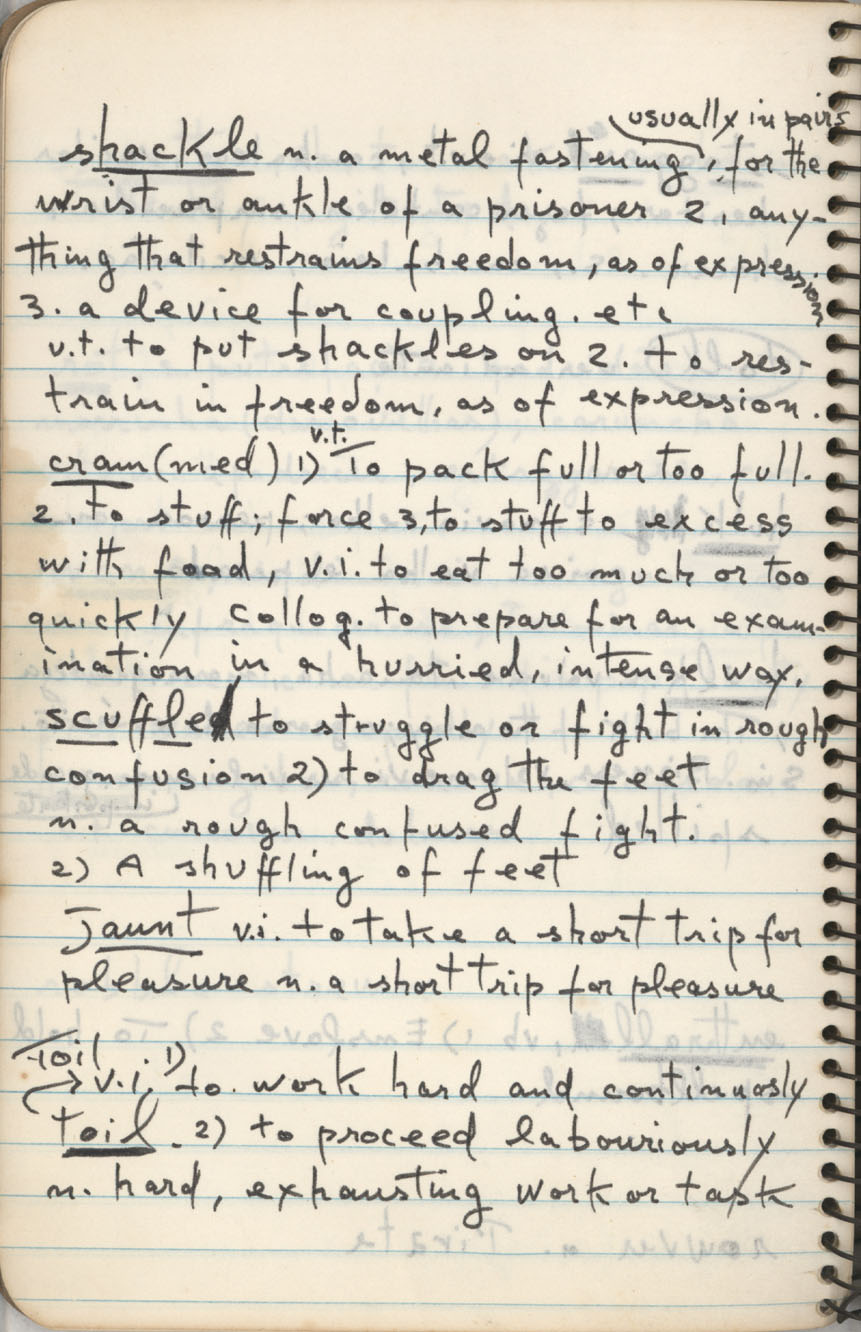 usually in pairs
shackle n. a metal fastening, for the
wrist or ankle of a prisoner 2, any-
thing that restrains freedom, as of expression
3. a device for coupling. etc
v.t. to put shackles on 2. to res-
train in freedom, as of expression.
v.t.
cram (med) 1) To pack full or too full.
2. to stuff; force 3, to stuff to excess
with foad, v.i. to eat too much or too
quickly colloq. to prepare for an exam-
ination in a hurried, intense way.
scuffle to struggle or fight in rough
confusion 2) to drag the feet
n. a rough confused fight.
2) A shuffling of feet
Jaunt v.i. to take a short trip for
pleasure n. a short trip for pleasure
Toil
v.i. 1) to work hard and continuosly
toil. 2) to proceed labouriously
n. hard, exhausting work or task